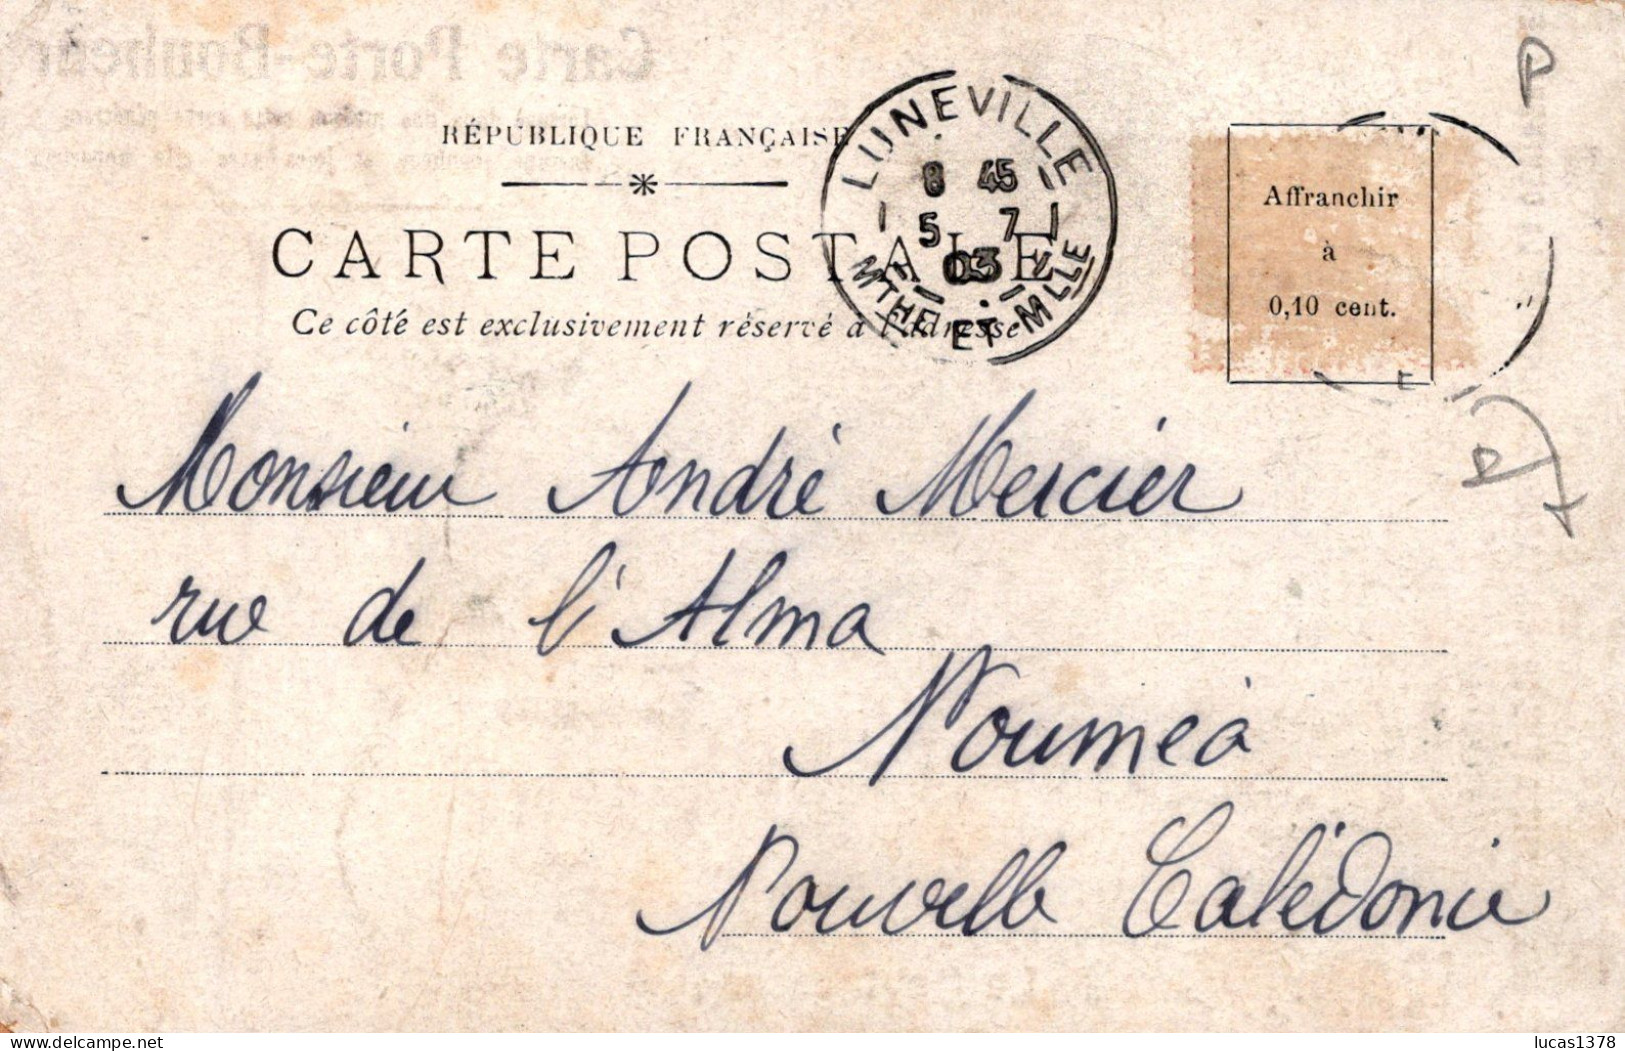 Carte Porte-Bonheur
RÉPUBLIQUE FRANÇAISE
CARTE POSTALE
Ce côté est exclusivement réservé à l'adresse
LUNEVILLE
8 45
5 7
03
MTHE ET MLLE
Affranchir
à
0,10 cent.
Monsieur André Mercier
rue de l'Alma
Nouméa
Nouvelle Calédonie
lucas1378